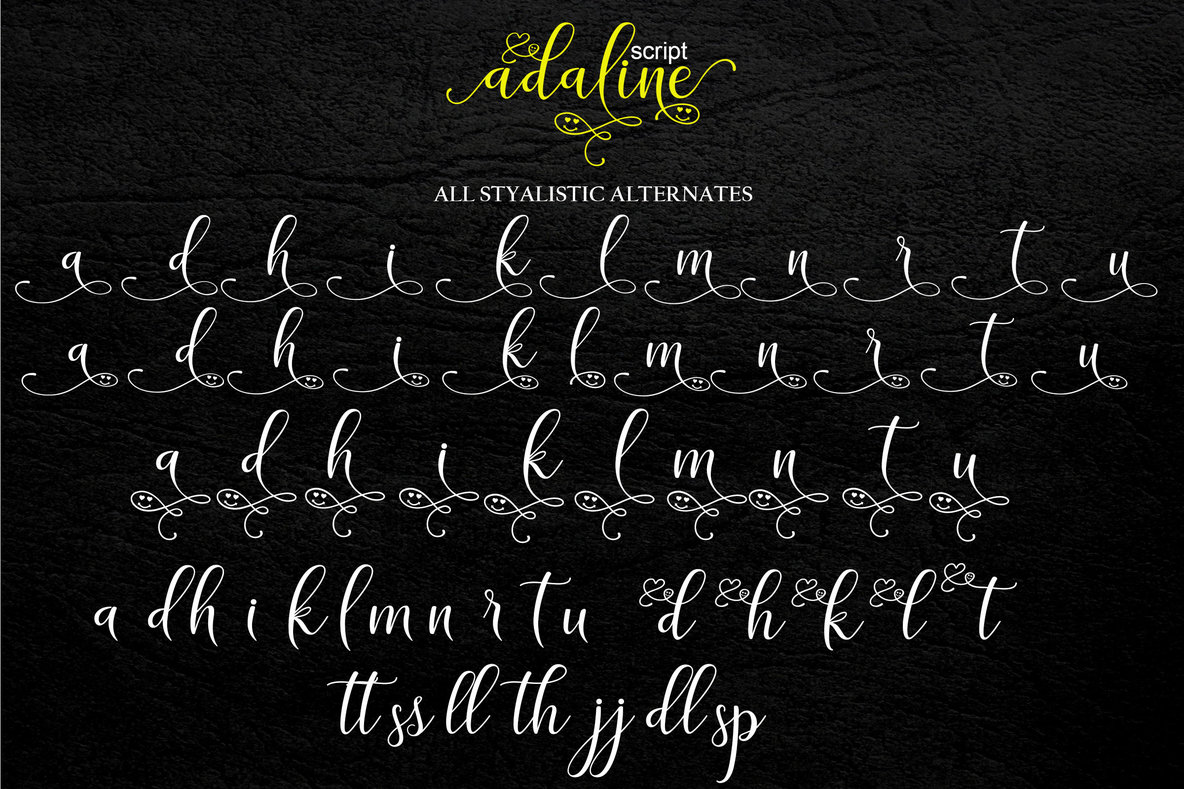 script
adaline
ALL STYALISTIC ALTERNATES
a d h i k l m n r t u
a d h i k l m n r t u
a d h i k l m n t u
a d h i k l m n r t u d h k l t
tt ss ll th jj dl sp